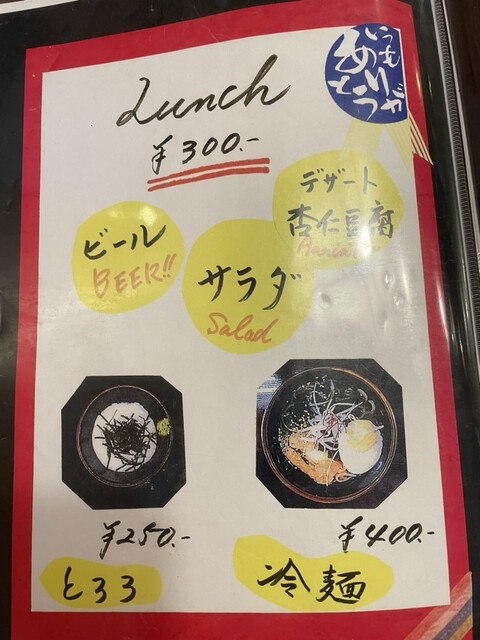 いつも
ありが
とう
Lunch
¥300.-
デザート
杏仁豆腐
ビール
BEER!!
サラダ
Salad
¥250.-
¥400.-
とろろ
冷麺